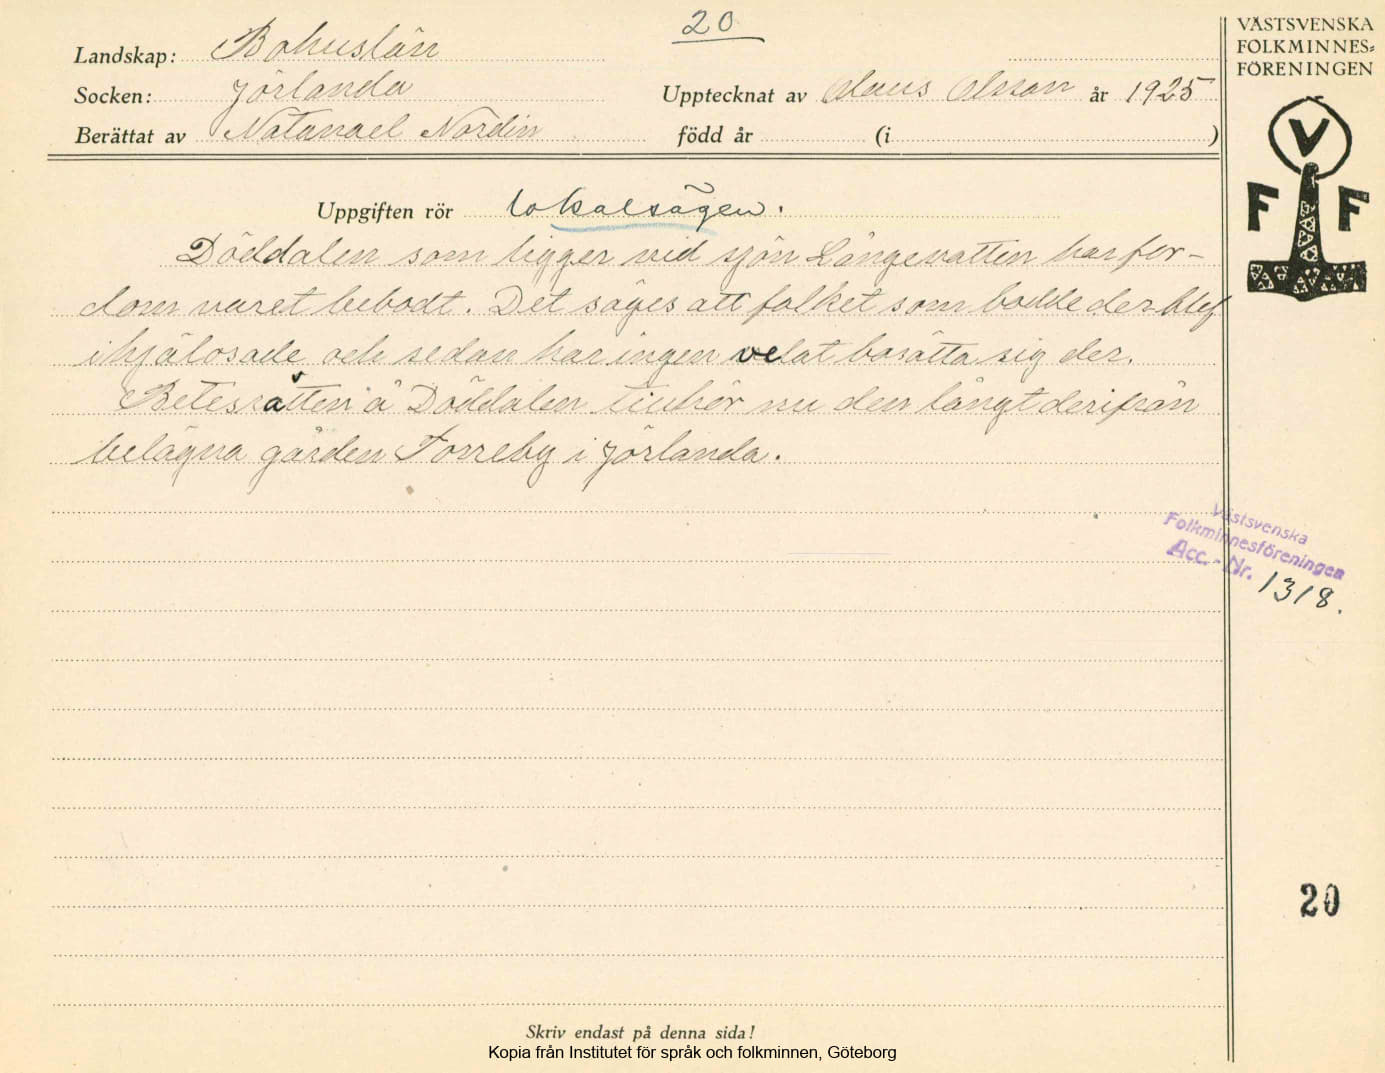 20
Landskap: Bohuslän
Socken: Jörlanda
Upptecknat av Claus Olsson år 1925
Berättat av Natanael Nordin född år (i )
VÄSTSVENSKA
FOLKMINNES=
FÖRENINGEN
V
F F
Uppgiften rör lokalsägen.
Döddalen som ligger vid sjön Långevatten har for-
dom varet bebodt. Det säges att folket som bodde der blef
ihjälosade och sedan har ingen velat bosätta sig der.
Betesrätten å Döddalen tillhör nu den långt derifrån
belägna gården Torreby i Jörlanda.
Västsvenska
Folkminnesföreningen
Acc.-Nr. 1318.
20
Skriv endast på denna sida!
Kopia från Institutet för språk och folkminnen, Göteborg